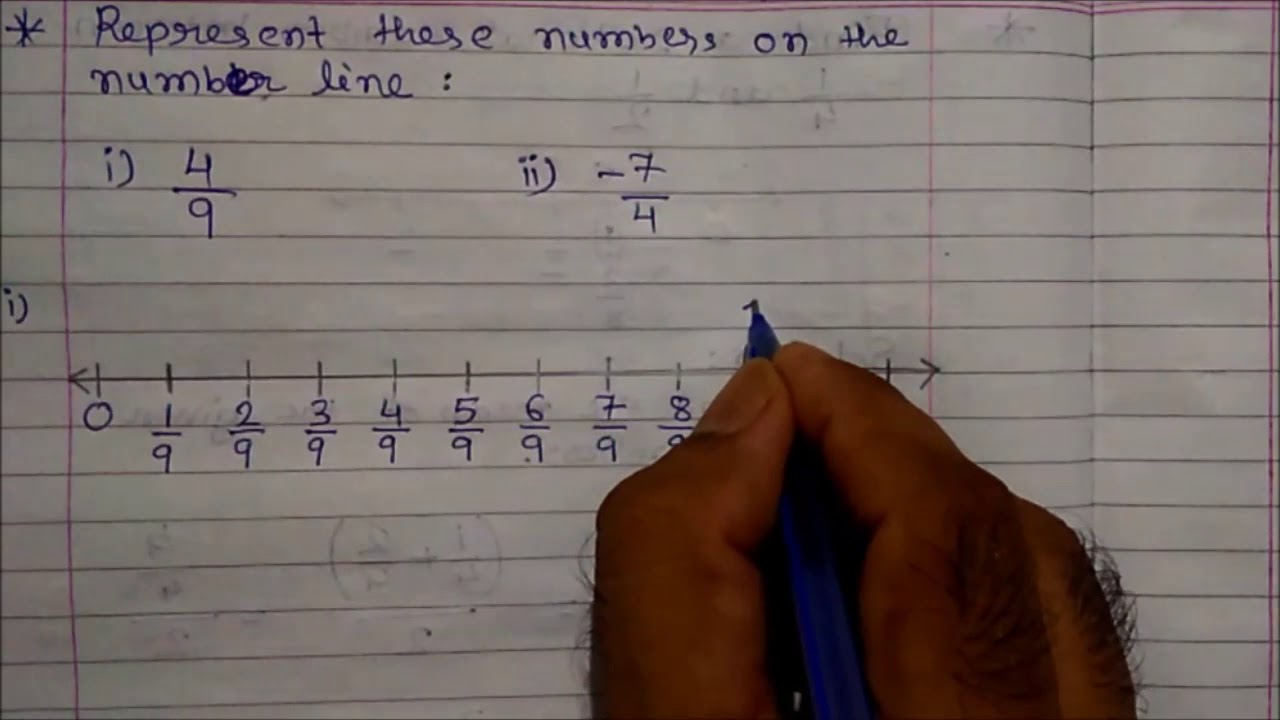 * Represent these numbers on the
number line :
i) 4/9 ii) -7/4
i)
0 1/9 2/9 3/9 4/9 5/9 6/9 7/9 8/9